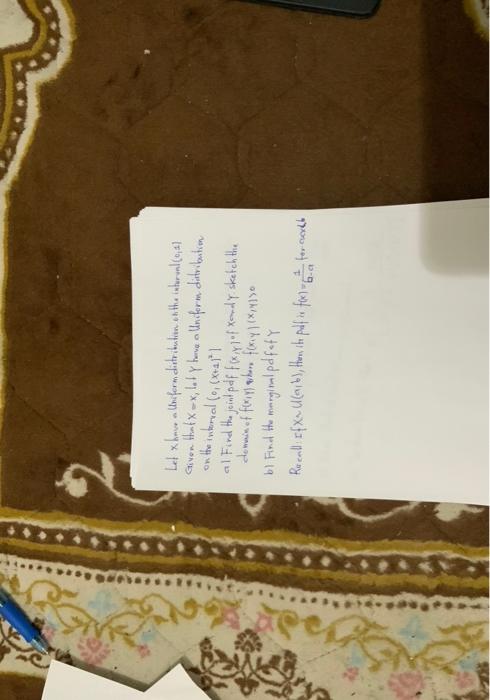 Let X have a Uniform distribution on the interval (0,1)
Given that X=x, let Y have a Uniform distribution
on the interval (0, (x+1)²)
a) Find the joint pdf f(x,y) of X and Y sketch the
domain of f(x,y) where f(x,y) (x,y)>0
b) Find the marginal pdf of Y
Recall: if X~U(a,b), then its pdf is f(x)=1/b-a for a<x<b